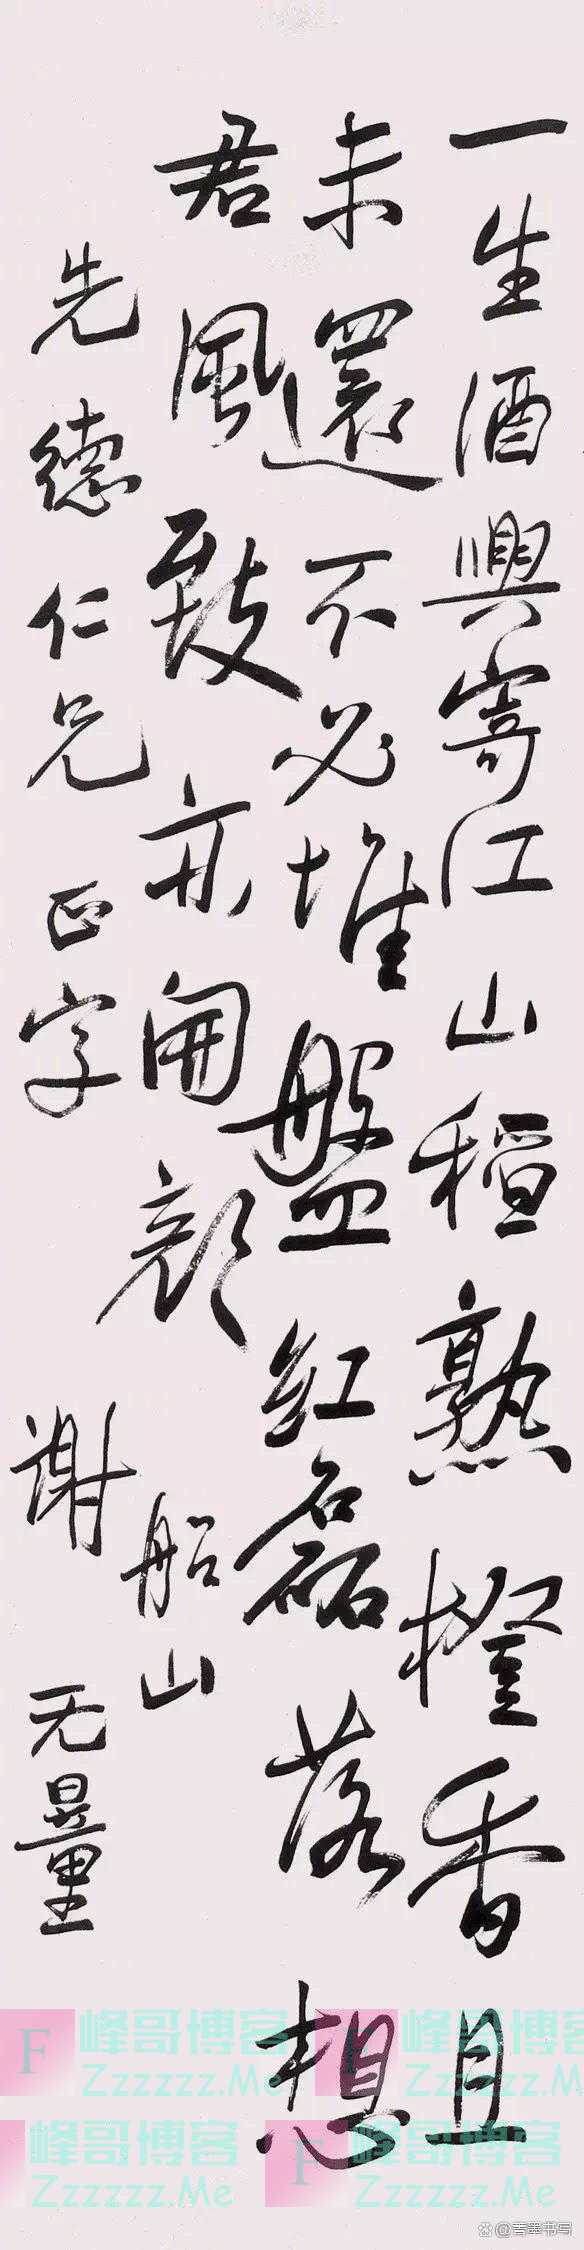 一生酒興寄江山稻熟橙香且
未還不必堆盤紅磊落想
君風致亦開顏
船山
先德仁兄正字
謝无量
F 峰哥博客
Zzzzzz.Me
F 峰哥博客
Zzzzzz.Me
峰哥博客
Zzzzzz.Me
F 峰哥博客
Zzzzzz.Me
@善墨书写